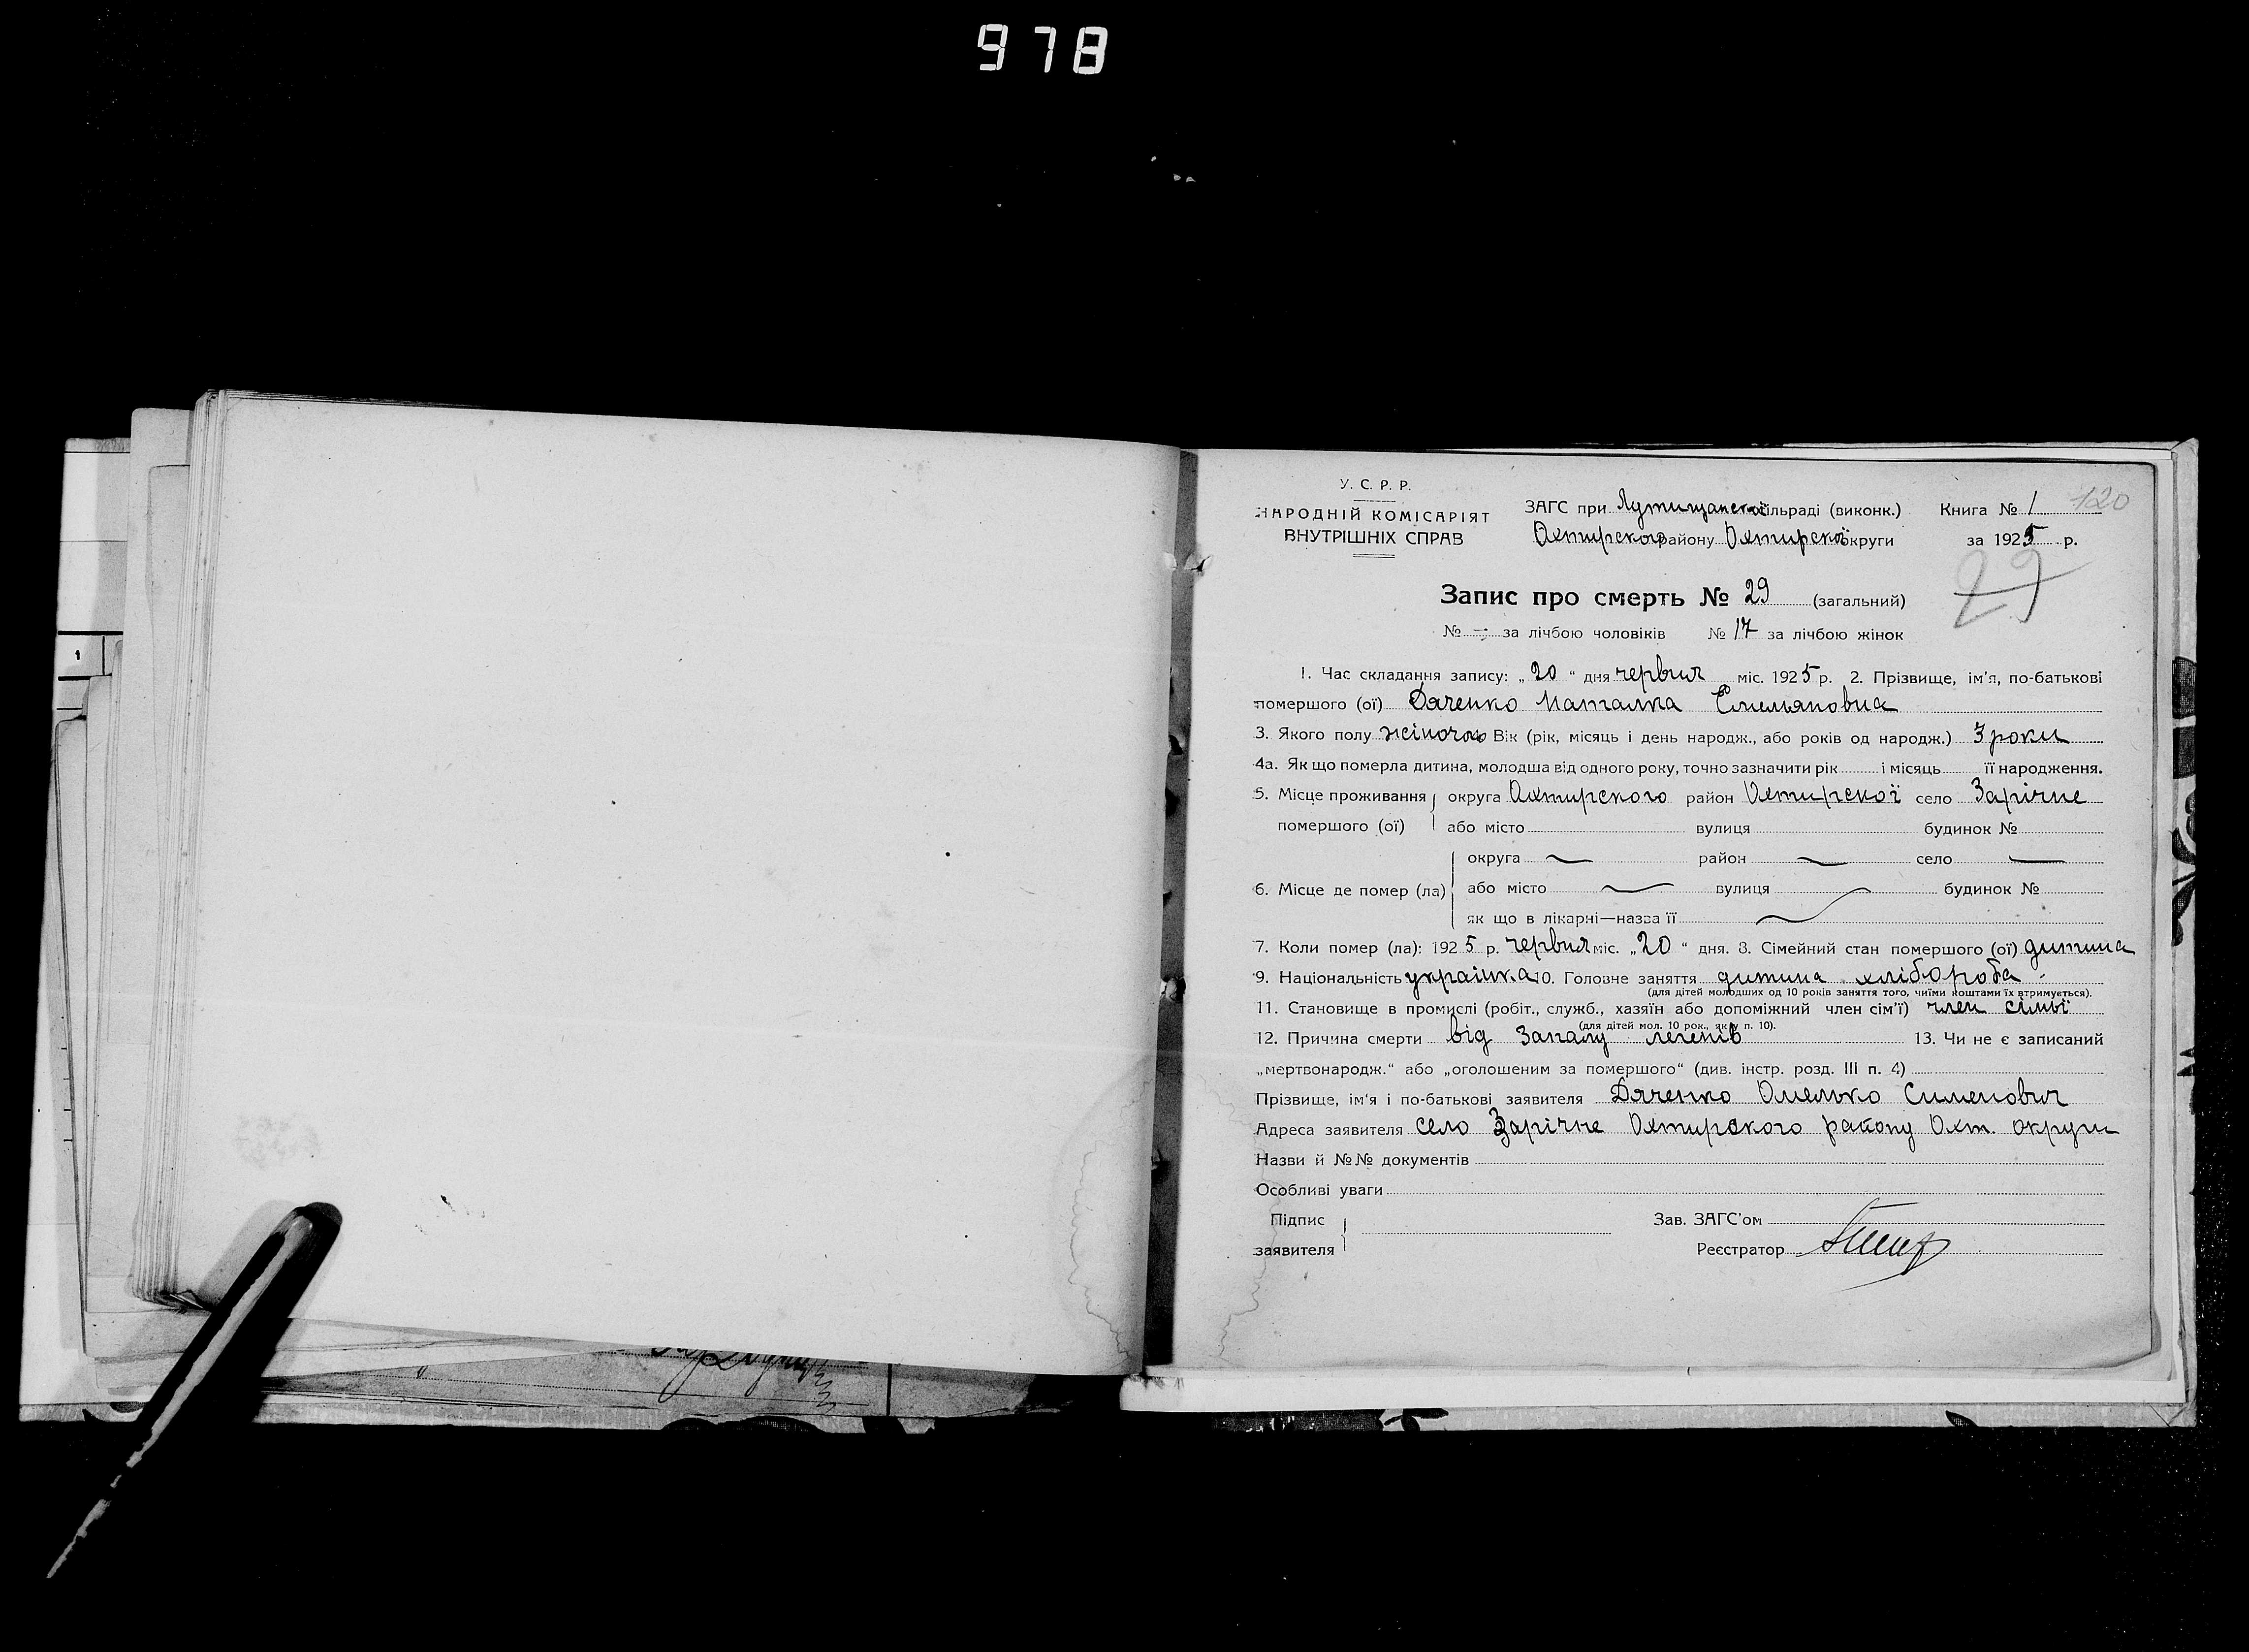 978
У. С. Р. Р.
НАРОДНІЙ КОМІСАРІЯТ
ВНУТРІШНІХ СПРАВ
ЗАГС при Лутищанской сільраді (виконк.)
Охтирского району Охтирскої округи
Книга № 1
120
за 1925 р.
29
Запис про смерть № 29 (загальний)
№ — за лічбою чоловіків № 17 за лічбою жінок
1. Час складання запису: „20“ дня червня міс. 1925 р. 2. Прізвище, ім'я, по-батькові
помершого (ої) Дяченко Наталка Емельяновна
3. Якого полу жіночого Вік (рік, місяць і день народж., або років од народж.) 3 роки
4а. Як що померла дитина, молодша від одного року, точно зазначити рік і місяць її народження.
5. Місце проживання округа Охтирского район Охтирскої село Зарічне
помершого (ої) або місто вулиця будинок №
округа — район — село —
6. Місце де помер (ла) або місто — вулиця — будинок №
як що в лікарні—назва її —
7. Коли помер (ла): 1925 р. червня міс. „20“ дня. 8. Сімейний стан помершого (ої) дитина
9. Національність українка 10. Головне заняття дитина хлібороба
(для дітей молодших од 10 років заняття того, чиїми коштами їх втримується).
11. Становище в промислі (робіт., служб., хазяїн або допоміжний член сім'ї) член сімьї
(для дітей мол. 10 рок., як у п. 10).
12. Причина смерти від запалу легенів 13. Чи не є записаний
„мертвонародж.“ або „оголошеним за помершого“ (див. інстр. розд. III п. 4)
Прізвище, ім'я і по-батькові заявителя Дяченко Омелько Сименович
Адреса заявителя село Зарічне Охтирского району Охт. округи
Назви й №№ документів
Особливі уваги
Підпис
заявителя
Зав. ЗАГС'ом
Реєстратор